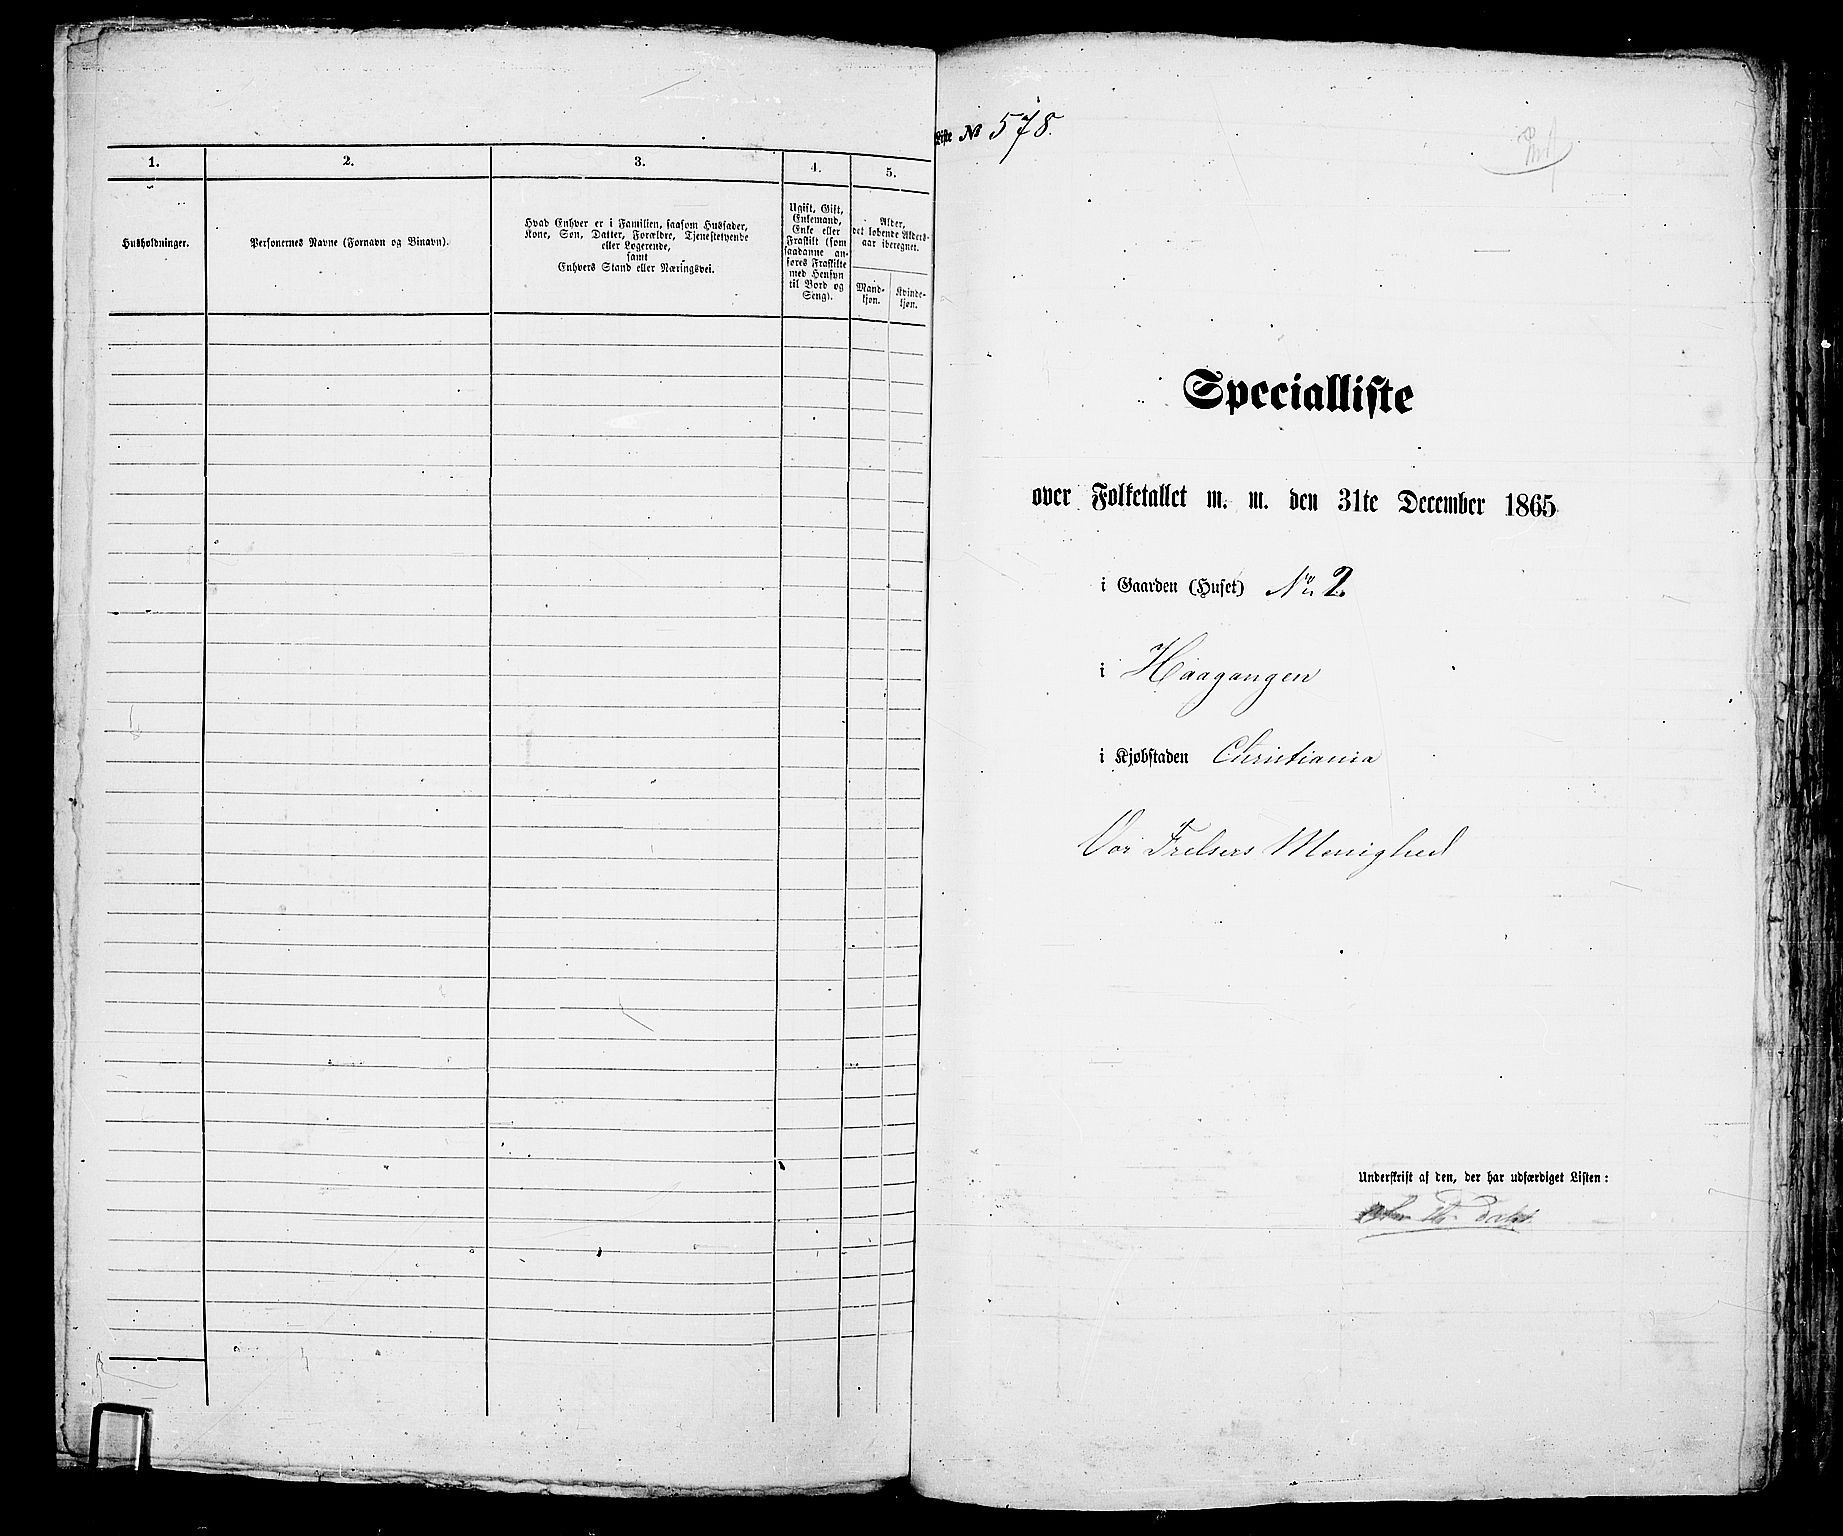 1.
2.
3.
4.
5.
Husholdninger.
Personernes Navne (Fornavn og Binavn).
Hvad Enhver er i Familien, saasom Husfader,
Kone, Søn, Datter, Forældre, Tjenestetyende
eller Logerende,
samt
Enhvers Stand eller Næringsvei.
Ugift, Gift,
Enkemand,
Enke eller
Fraskilt (som
saadanne an-
føres Fraskilte
med Hensyn
til Bord og
Seng).
Alder,
det løbende Alders-
aar iberegnet.
Mand-
kjøn.
Kvinde-
kjøn.
Liste № 578.
Specialliste
over Folketallet m. m. den 31te December 1865
i Gaarden (Huset) No 2.
i Haagangen
i Kjøbstaden Christiania
Vor Frelsers Menighed
Underskrift af den, der har udfærdiget Listen: